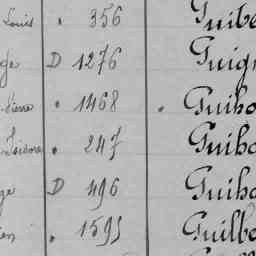 Louis " 356 Guibe
ge D 1276 Guign
Pierre " 1468 Guiho
" 247 Guiho
ge D 496 Guiho
en " 1591 Guilbe